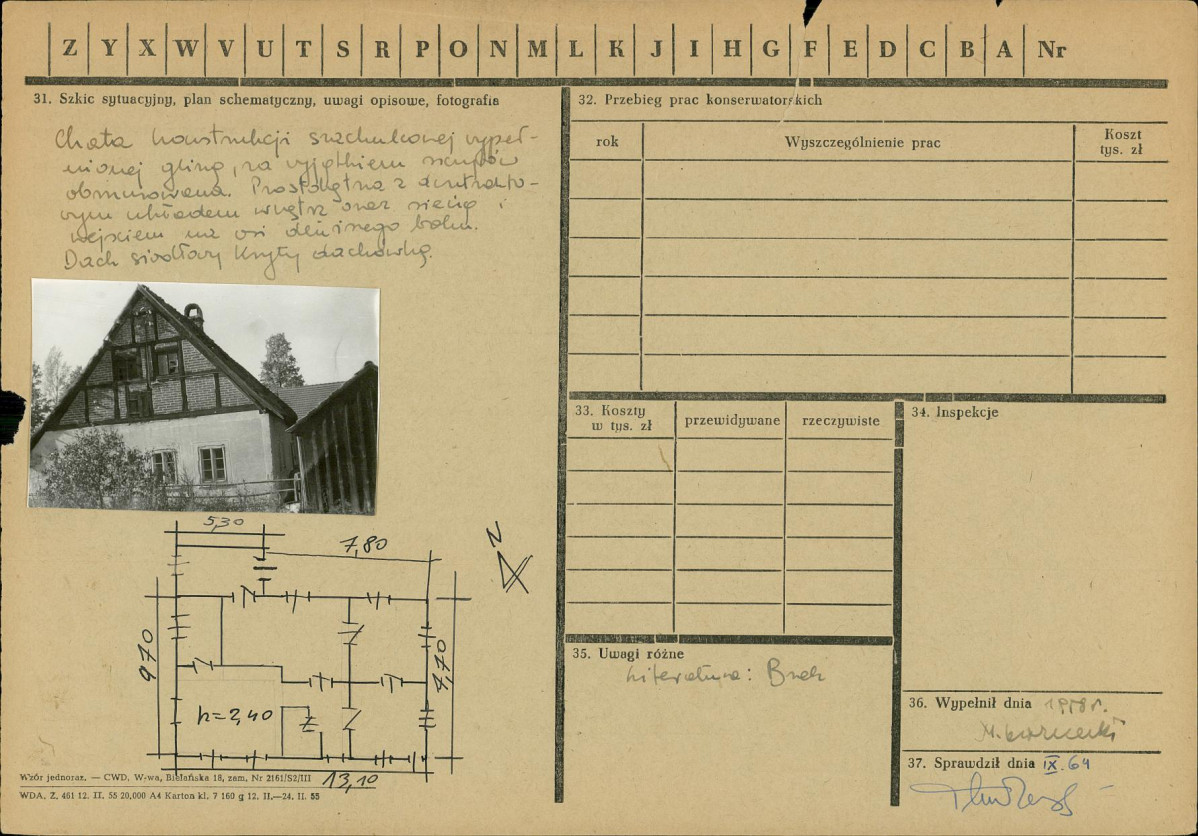 Z Y X W V U T S R P O N M L K J I H G F E D C B A Nr
31. Szkic sytuacyjny, plan schematyczny, uwagi opisowe, fotografia
Chata konstrukcji szachulcowej wypeł-
nionej gliną, za wyjątkiem
obmurowana. Prostokątna z
układem wnętrz oraz sienią i
wejściem na osi dłuższego boku.
Dach siodłowy kryty dachówką.
5,30
7,80
N
970
4,70
h=2,40
13,10
Wzór jednoraz. — CWD, W-wa, Bielańska 18, zam. Nr 2161/S2/III
WDA. Z. 461 12. II. 55 20,000 A4 Karton kl. 7 160 g 12. II.—24. II. 55
32. Przebieg prac konserwatorskich
rok
Wyszczególnienie prac
Koszt
tys. zł
33. Koszty
w tys. zł
przewidywane
rzeczywiste
34. Inspekcje
35. Uwagi różne
Literatura: Brak
36. Wypełnił dnia 1958 r.
37. Sprawdził dnia IX.64